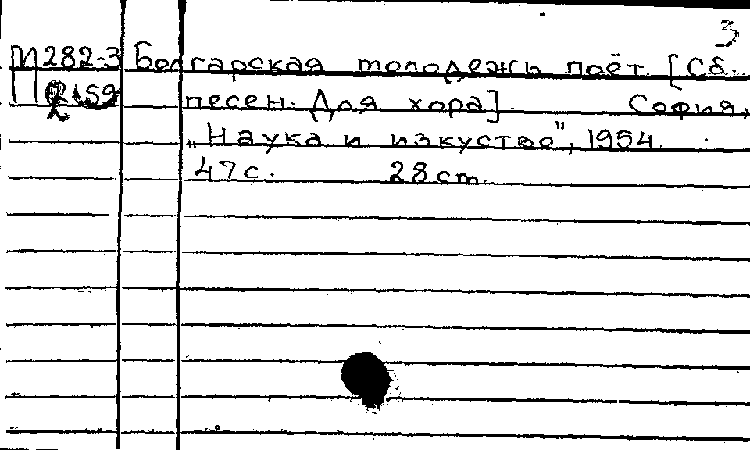 3
М282-3 Болгарская молодежь поёт. [Сб.
песен. Для хора] София,
„Наука и изкуство", 1954.
47с. 28cm.